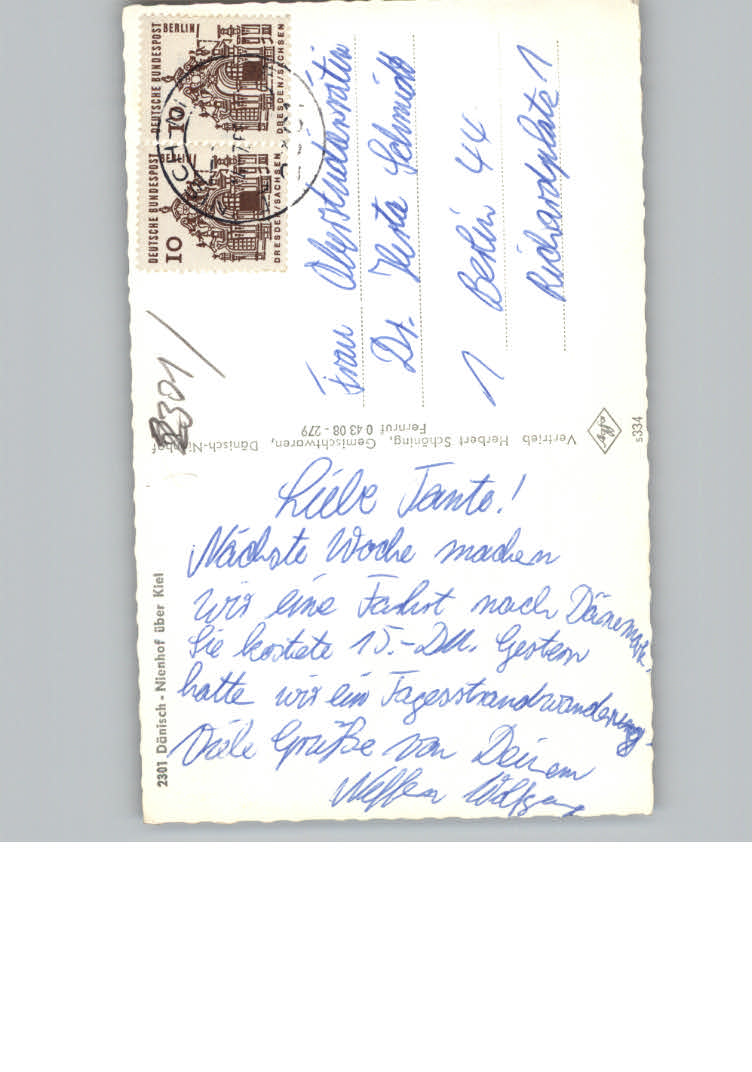 Liebe Tante!
Nächste Woche machen
wir eine Fahrt nach Dänemark.
Sie kostete 15.- DM. Gestern
hatte wir ein Tagesstrandwanderung.
Viele Grüße von Deinem
Neffen Wolfgang
2301 Dänisch-Nienhof über Kiel
Vertrieb Herbert Schöning, Gemischtwaren, Dänisch-Nienhof
Fernruf 0 43 08 - 279
5334
2301
DEUTSCHE BUNDESPOST BERLIN
10
DRESDEN/SACHSEN
DEUTSCHE BUNDESPOST BERLIN
10
DRESDEN/SACHSEN
Frau Oberstudienrätin
Dr. Herta Schmidt
1 Berlin 44
Richardplatz 1